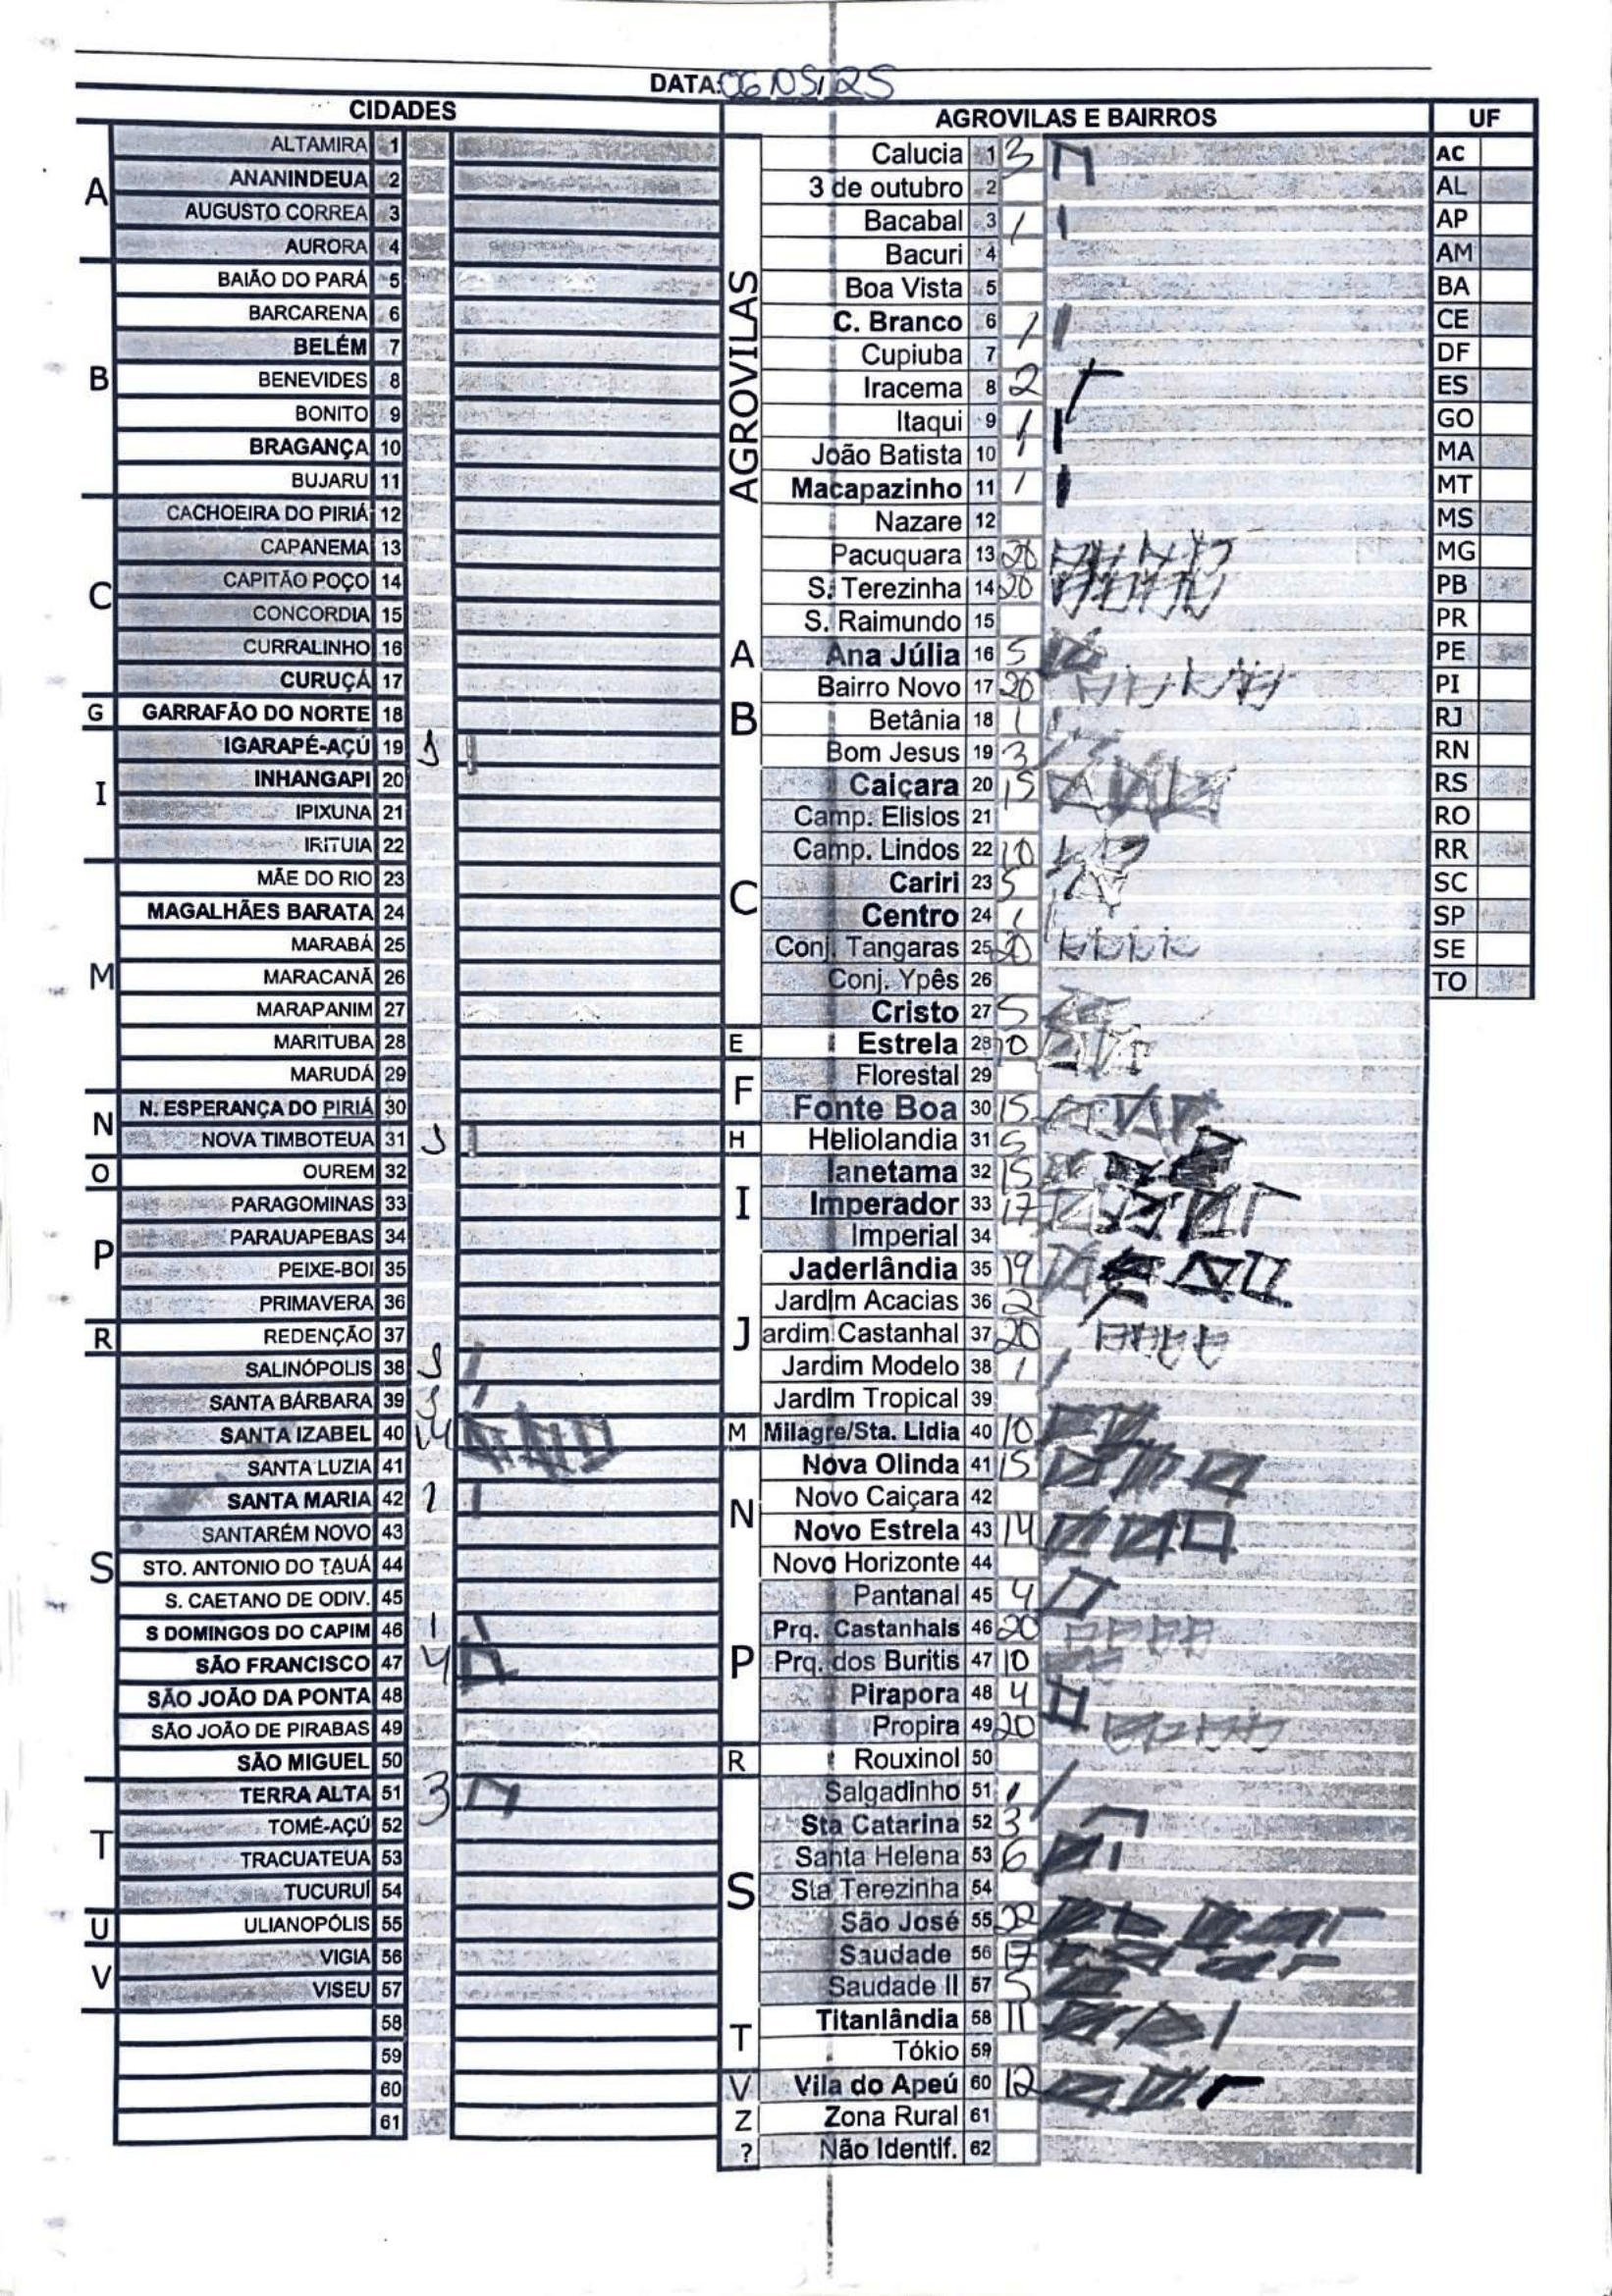 DATA: 06/05/25
CIDADES
A
ALTAMIRA 1
ANANINDEUA 2
AUGUSTO CORREA 3
AURORA 4
B
BAIÃO DO PARÁ 5
BARCARENA 6
BELÉM 7
BENEVIDES 8
BONITO 9
BRAGANÇA 10
BUJARU 11
C
CACHOEIRA DO PIRIÁ 12
CAPANEMA 13
CAPITÃO POÇO 14
CONCORDIA 15
CURRALINHO 16
CURUÇÁ 17
G
GARRAFÃO DO NORTE 18
I
IGARAPÉ-AÇÚ 19
INHANGAPI 20
IPIXUNA 21
IRITUIA 22
M
MÃE DO RIO 23
MAGALHÃES BARATA 24
MARABÁ 25
MARACANÃ 26
MARAPANIM 27
MARITUBA 28
MARUDÁ 29
N
N. ESPERANÇA DO PIRIÁ 30
NOVA TIMBOTEUA 31
O
OUREM 32
P
PARAGOMINAS 33
PARAUAPEBAS 34
PEIXE-BOI 35
PRIMAVERA 36
R
REDENÇÃO 37
S
SALINÓPOLIS 38
SANTA BÁRBARA 39
SANTA IZABEL 40 14
SANTA LUZIA 41
SANTA MARIA 42 1
SANTARÉM NOVO 43
STO. ANTONIO DO TAUÁ 44
S. CAETANO DE ODIV. 45
S DOMINGOS DO CAPIM 46 1
SÃO FRANCISCO 47 4
SÃO JOÃO DA PONTA 48
SÃO JOÃO DE PIRABAS 49
SÃO MIGUEL 50
T
TERRA ALTA 51 3
TOMÉ-AÇÚ 52
TRACUATEUA 53
TUCURUÍ 54
U
ULIANOPÓLIS 55
V
VIGIA 56
VISEU 57
58
59
60
61
AGROVILAS E BAIRROS
AGROVILAS
Calucia 1 3
3 de outubro 2
Bacabal 3 1
Bacuri 4
Boa Vista 5
C. Branco 6 1
Cupiuba 7
Iracema 8 2
Itaqui 9 1
João Batista 10
Macapazinho 11 1
Nazare 12
Pacuquara 13 20
S. Terezinha 14 20
S. Raimundo 15
A
Ana Júlia 16 5
Bairro Novo 17 20
B
Betânia 18 1
Bom Jesus 19 3
C
Caiçara 20 15
Camp. Elisios 21
Camp. Lindos 22 10
Cariri 23 5
Centro 24 1
Conj. Tangaras 25 20
Conj. Ypês 26
Cristo 27 5
E
Estrela 28 10
F
Florestal 29
Fonte Boa 30 15
H
Heliolandia 31 5
I
Ianetama 32 15
Imperador 33 17
Imperial 34
J
Jaderlândia 35 19
Jardim Acacias 36 2
ardim Castanhal 37 20
Jardim Modelo 38 1
Jardim Tropical 39
M
Milagre/Sta. Lidia 40 10
N
Nova Olinda 41 15
Novo Caiçara 42
Novo Estrela 43 14
Novo Horizonte 44
P
Pantanal 45 4
Prq. Castanhais 46 20
Prq. dos Buritis 47 10
Pirapora 48 4
Propira 49 20
R
Rouxinol 50
S
Salgadinho 51 1
Sta Catarina 52 3
Santa Helena 53 6
Sta Terezinha 54
São José 55 22
Saudade 56 17
Saudade II 57 5
T
Titanlândia 58 11
Tókio 59
V
Vila do Apeú 60 12
Z
Zona Rural 61
?
Não Identif. 62
UF
AC
AL
AP
AM
BA
CE
DF
ES
GO
MA
MT
MS
MG
PB
PR
PE
PI
RJ
RN
RS
RO
RR
SC
SP
SE
TO